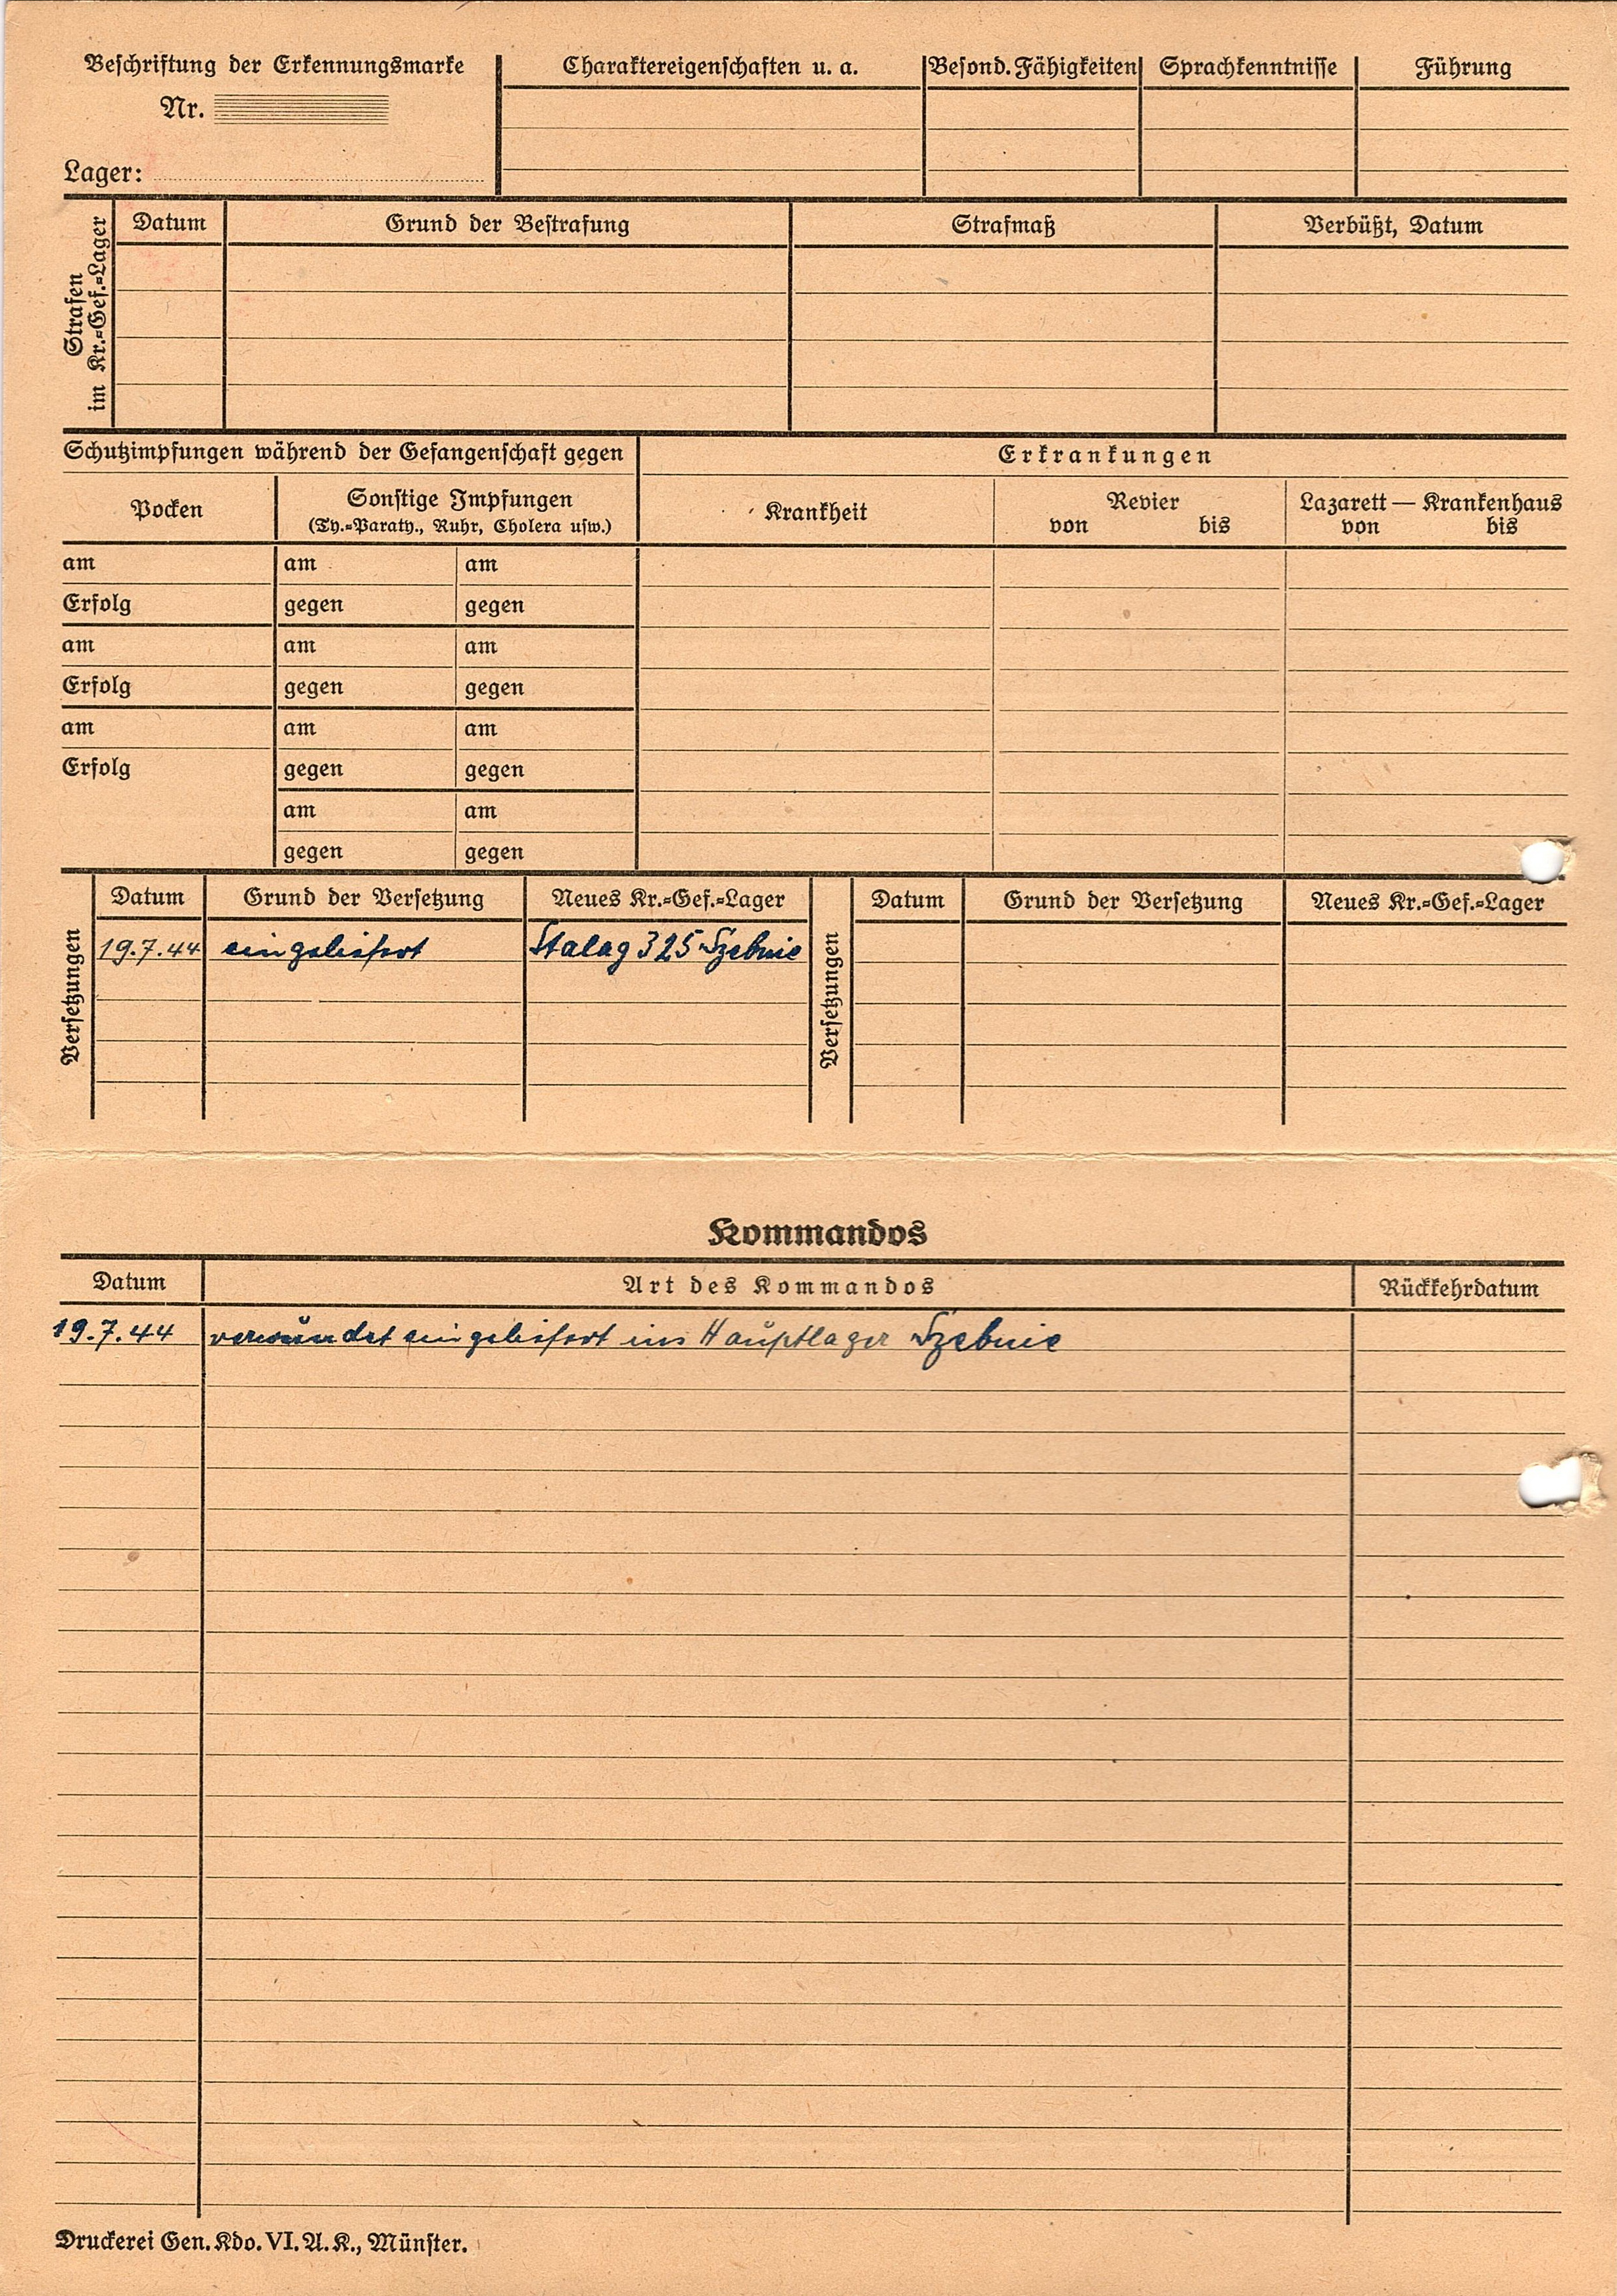 Beschriftung der Erkennungsmarke
Nr.
Lager:
Charaktereigenschaften u. a.
Besond. Fähigkeiten
Sprachkenntnisse
Führung
Strafen
im Kr.=Gef.=Lager
Datum
Grund der Bestrafung
Strafmaß
Verbüßt, Datum
Schutzimpfungen während der Gefangenschaft gegen
Erkrankungen
Pocken
Sonstige Impfungen
(Ty.=Paraty., Ruhr, Cholera usw.)
Krankheit
Revier
von bis
Lazarett — Krankenhaus
von bis
am am am
Erfolg gegen gegen
am am am
Erfolg gegen gegen
am am am
Erfolg gegen gegen
am am
gegen gegen
Versetzungen
Datum Grund der Versetzung Neues Kr.=Gef.=Lager
19.7.44 eingeliefert Stalag 325 Szebnie
Versetzungen
Datum Grund der Versetzung Neues Kr.=Gef.=Lager
Kommandos
Datum Art des Kommandos Rückkehrdatum
19.7.44 verwundet eingeliefert ins Hauptlager Szebnie
Druckerei Gen. Kdo. VI. A. K., Münster.